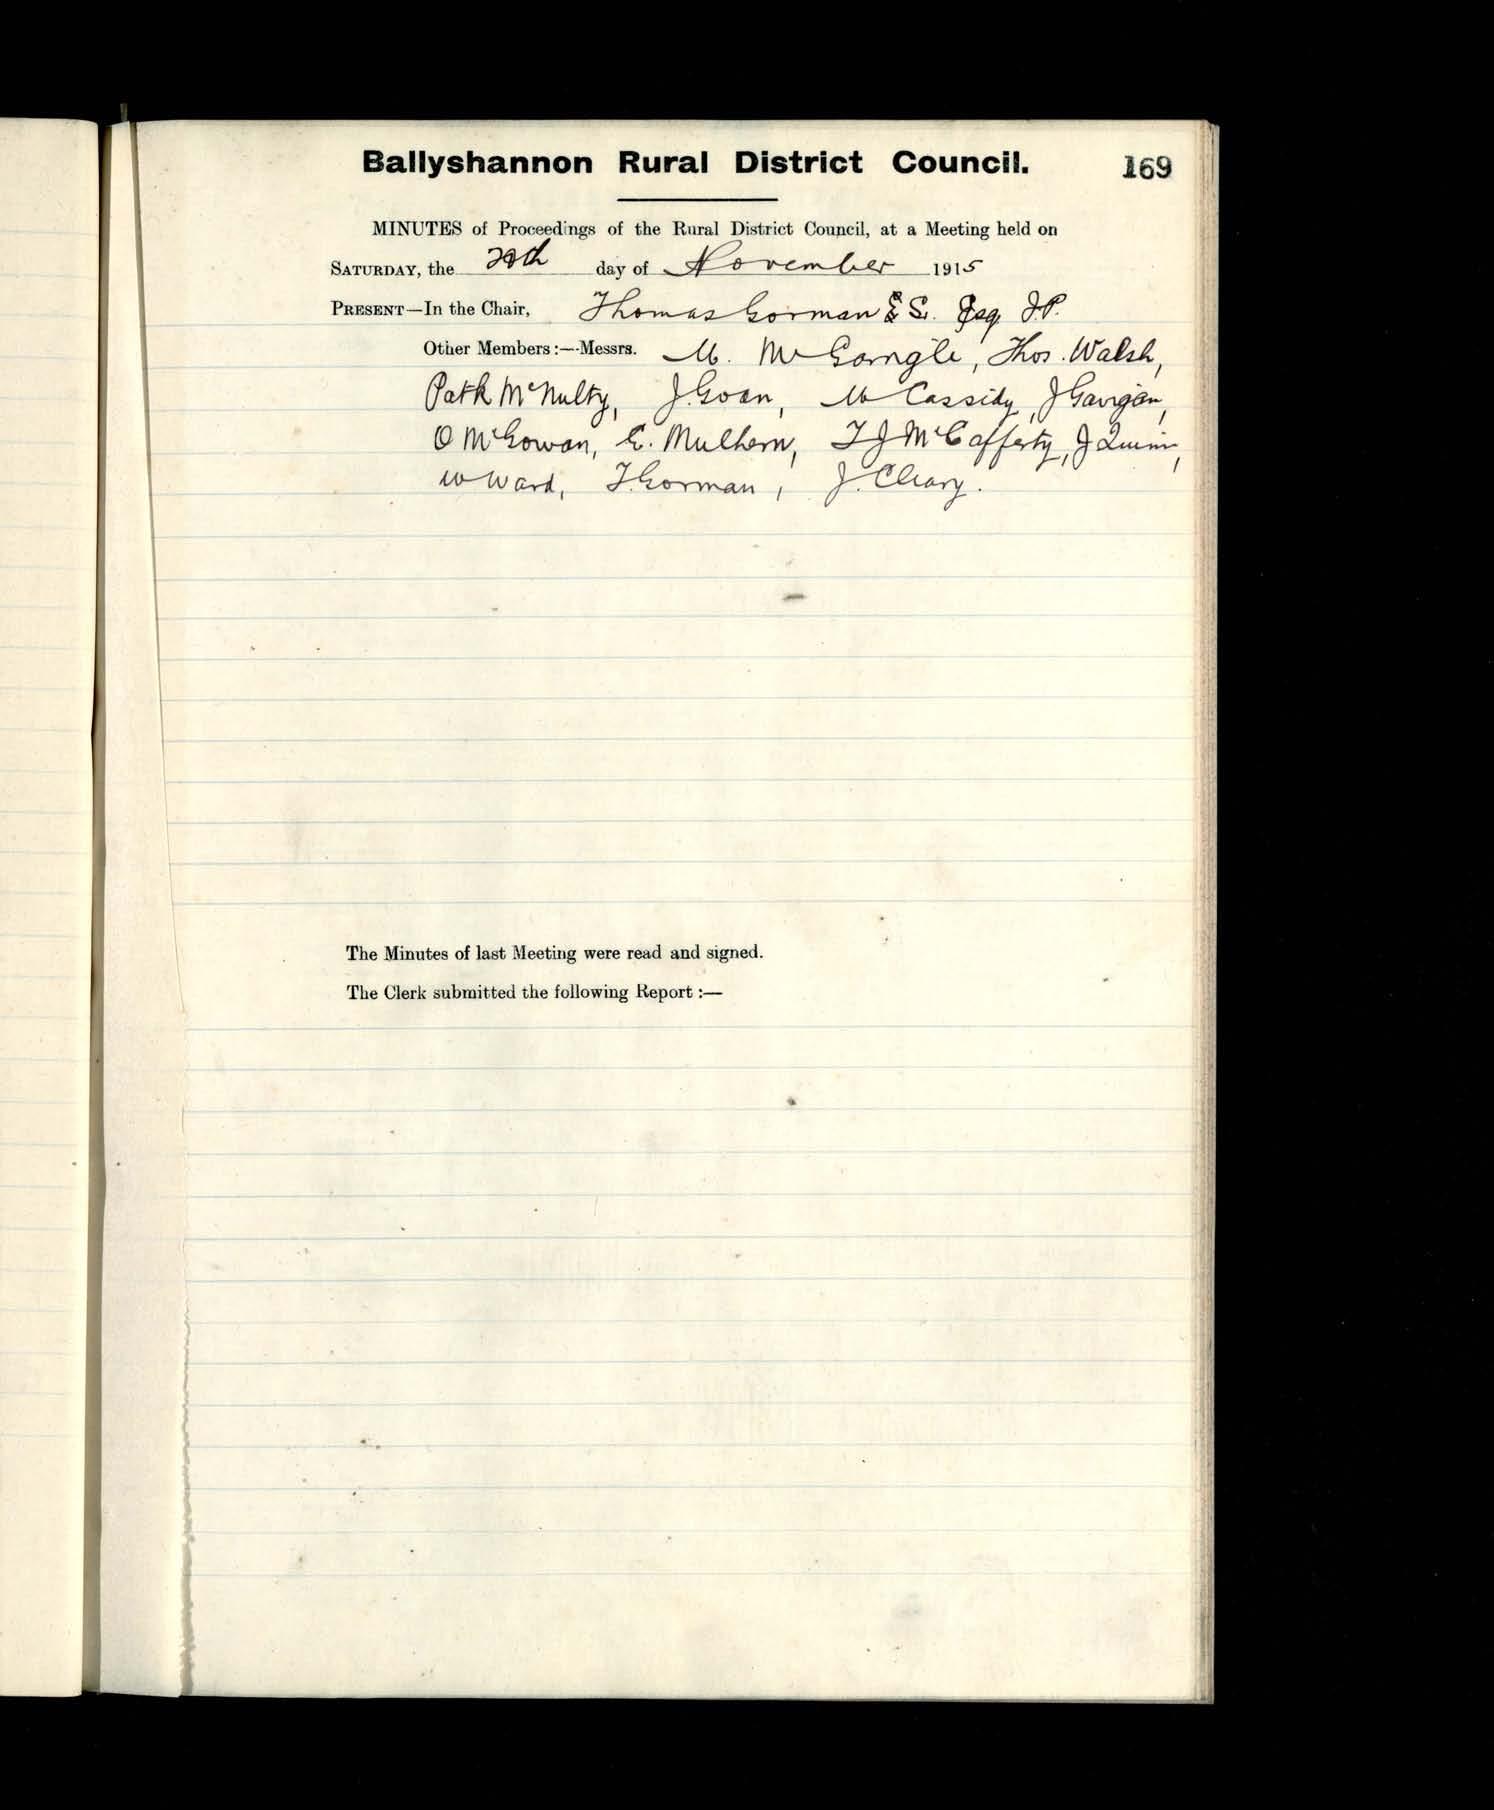 Ballyshannon Rural District Council.
169
MINUTES of Proceedings of the Rural District Council, at a Meeting held on
SATURDAY, the 20th day of November 1915
PRESENT—In the Chair, Thomas Gorman Esq. J.P.
Other Members:—Messrs. M. McGarrigle, Thos. Walsh,
Patk McNulty, J. Goan, M Cassidy, J Gavigan,
O McGowan, E. Mulhern, T J McCafferty, J Quinn,
W Ward, T. Gorman, J. Cleary.
The Minutes of last Meeting were read and signed.
The Clerk submitted the following Report :—